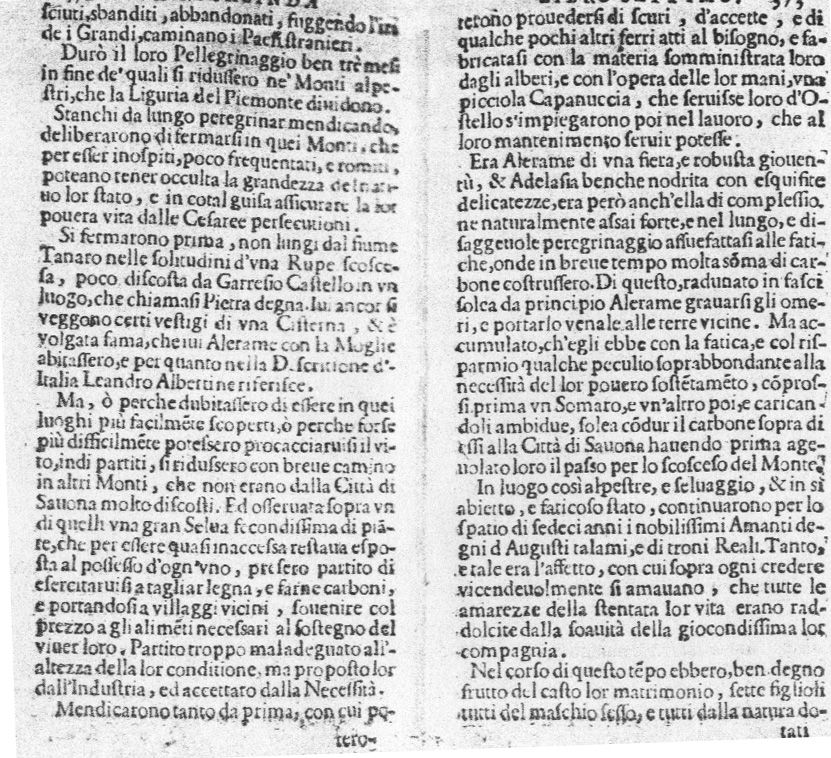 sciuti, sbanditi, abbandonati, fuggendo l'ira
de i Grandi, caminano i Paesi stranieri.
Durò il loro Pellegrinaggio ben trè mesi
in fine de' quali si ridussero ne' Monti alpe-
stri, che la Liguria del Piemonte diuidono.
Stanchi da lungo peregrinar mendicando,
deliberarono di fermarsi in quei Monti, che
per esser inospiti, poco frequentati, e romiti,
poteano tener occulta la grandezza del
uo lor stato, e in cotal guisa assicurare la lor
pouera vita dalle Cesaree persecutioni.
Si fermarono prima, non lungi dal fiume
Tanaro nelle solitudini d'vna Rupe scosce-
sa, poco discosta da Garresio Castello in vn
luogo, che chiamasi Pietra degna. Iui ancor si
veggono certi vestigi di vna Cisterna, & è
volgata fama, che iui Alerame con la Moglie
abitassero, e per quanto nella Descrittione d'-
Italia Leandro Alberti ne riferisce.
Ma, ò perche dubitassero di essere in quei
luoghi più facilmẽte scoperti, ò perche forse
più difficilmẽte potessero procacciaruisi il vi-
to, indi partiti, si ridussero con breue camino
in altri Monti, che non erano dalla Città di
Sauona molto discosti. Ed osseruata sopra vn
di quelli vna gran Selua fecondissima di piã-
te, che per essere quasi inaccessa restaua espo-
sta al possesso d'ogn'vno, presero partito di
esercitaruisi a tagliar legna, e farne carboni,
e portandosi a villaggi vicini, souenire col
prezzo a gli alimẽti necessari al sostegno del
viuer loro. Partito troppo maladeguato all'-
altezza della lor conditione, ma proposto lor
dall'Industria, ed accettato dalla Necessità.
Mendicarono tanto da prima, con cui po-
tero-
terono prouedersi di scuri, d'accette, e di
qualche pochi altri ferri atti al bisogno, e fa-
bricatasi con la materia somministrata loro
dagli alberi, e con l'opera delle lor mani, vna
picciola Capanuccia, che seruisse loro d'O-
stello s'impiegarono poi nel lauoro, che al
loro mantenimento seruir potesse.
Era Alerame di vna fiera, e robusta giouen-
tù, & Adelasia benche nodrita con esquisite
delicatezze, era però anch'ella di complessio-
ne naturalmente assai forte, e nel lungo, e di-
saggeuole peregrinaggio assuefattasi alle fati-
che, onde in breue tempo molta sõma di car-
bone costrussero. Di questo, radunato in fasci
solea da principio Alerame grauarsi gli ome-
ri, e portarlo venale alle terre vicine. Ma ac-
cumulato, ch'egli ebbe con la fatica, e col ris-
parmio qualche peculio soprabbondante alla
necessità del lor pouero sostẽtamẽto, cõpros-
si prima vn Somaro, e vn'altro poi, e carican-
doli ambidue, solea cõdur il carbone sopra di
essi alla Città di Sauona hauendo prima age-
uolato loro il passo per lo scosceso del Monte.
In luogo così alpestre, e seluaggio, & in sì
abietto, e faticoso stato, continuarono per lo
spatio di sedeci anni i nobilissimi Amanti de-
gni d'Augusti talami, e di troni Reali. Tanto,
e tale era l'affetto, con cui sopra ogni credere
vicendeuolmente si amauano, che tutte le
amarezze della stentata lor vita erano rad-
dolcite dalla soauità della giocondissima lor
compagnia.
Nel corso di questo tẽpo ebbero, ben degno
frutto del casto lor matrimonio, sette figlioli
tutti del maschio sesso, e tutti dalla natura do-
tati